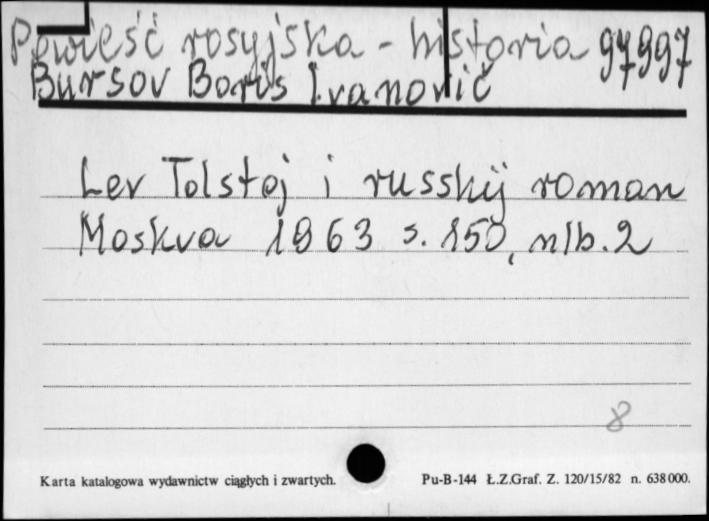 Powieść rosyjska - historia 97997
Bursov Boris Ivanovič
Lev Tolstoj i russkij roman
Moskva 1963 s. 150, nlb. 2
8
Karta katalogowa wydawnictw ciągłych i zwartych. Pu-B-144 Ł.Z.Graf. Z. 120/15/82 n. 638000.